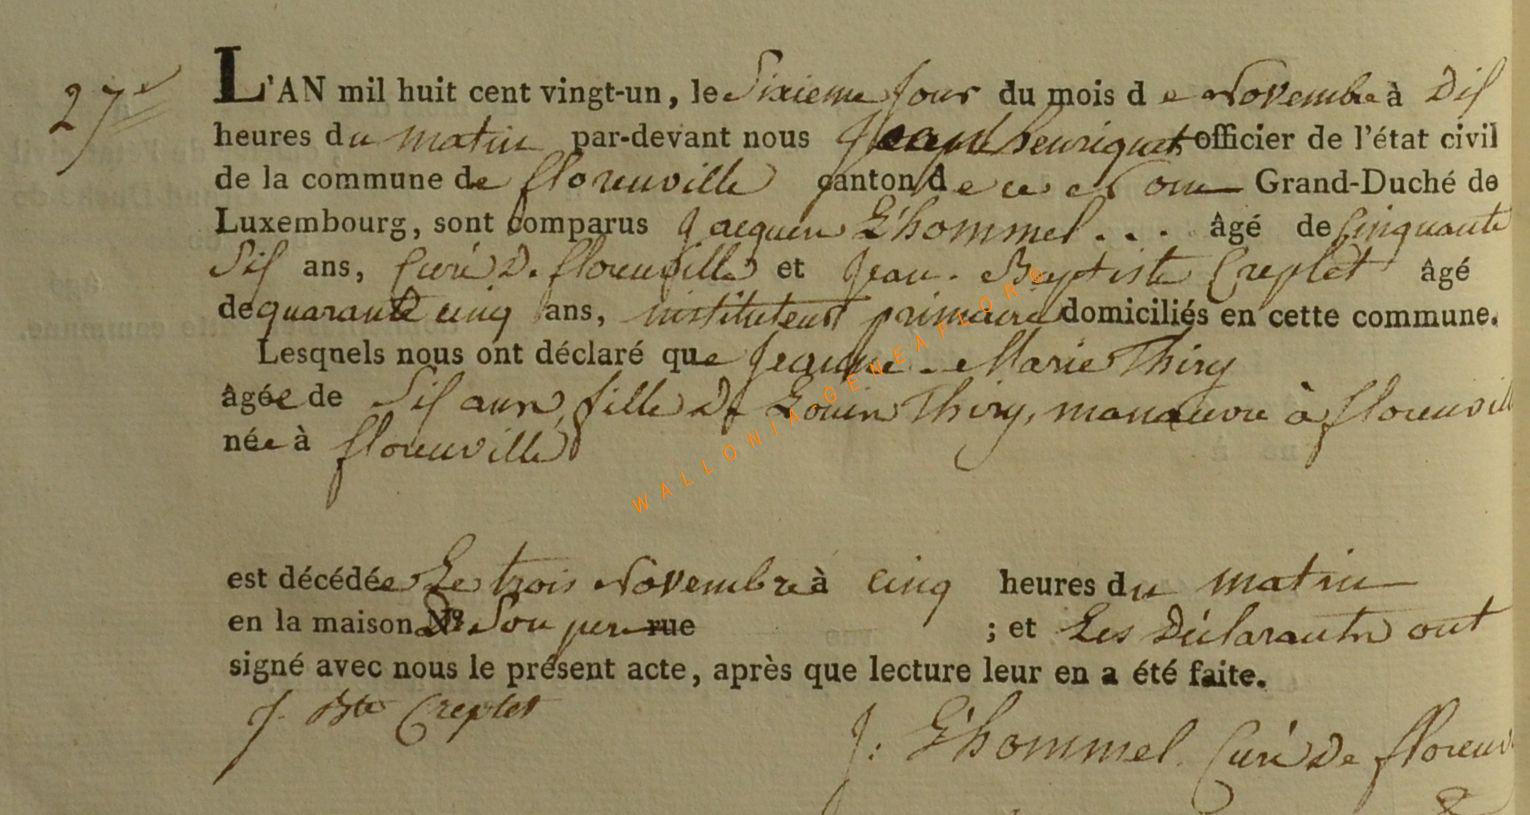 27e
L'AN mil huit cent vingt-un, le Sixieme Jour du mois de Novembre à Dix
heures du matin par-devant nous Joseph henriquet officier de l'état civil
de la commune de florenville canton de Grand-Duché de
Luxembourg, sont comparus Jacques L'hommel . . . âgé de Cinquante
Six ans, Curé De florenville et Jean-Baptiste Creplet âgé
de quarante cinq ans, instituteur primaire domiciliés en cette commune.
Lesquels nous ont déclaré que Jeanne-Marie Thiry
âgée de Six ans, fille De Louis Thiry, manœuvre à florenvill
née à florenville
WALLONIA GENEAFLORE
est décédée Le trois Novembre à cinq heures du matin
en la maison De Son pere rue ; et Les Déclarants ont
signé avec nous le présent acte, après que lecture leur en a été faite.
J. Bte Creplet
J: L'hommel Curé De florenv